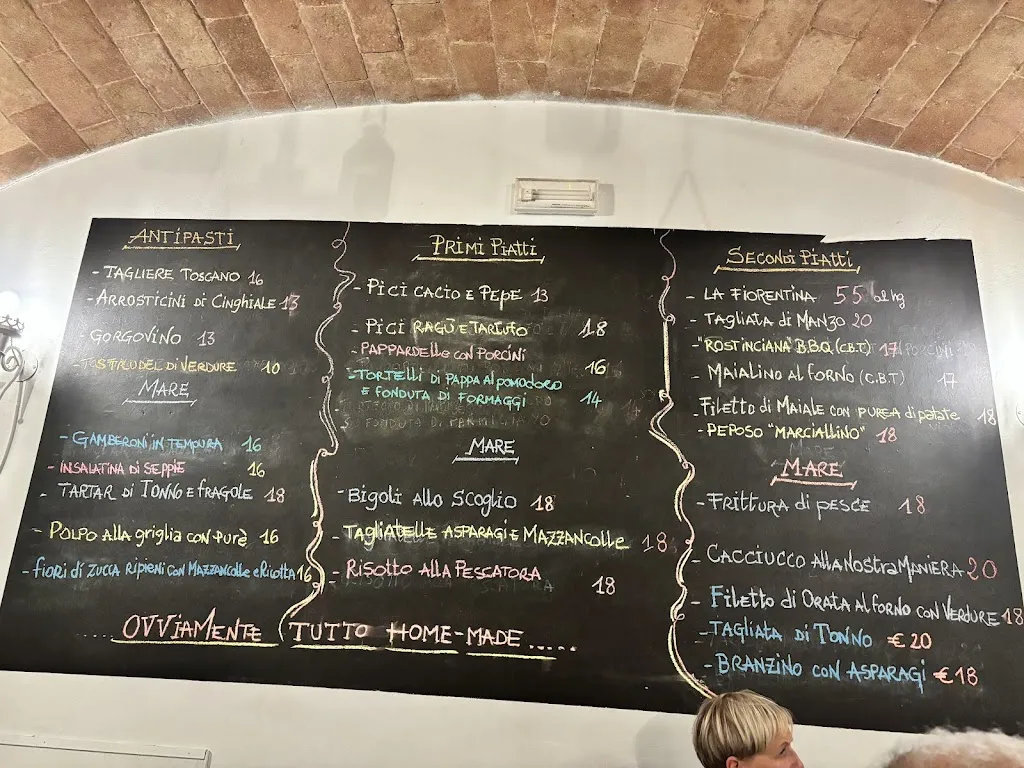 ANTIPASTI
- TAGLIERE TOSCANO 16
- ARROSTICINI DI CINGHIALE 13
- GORGOVINO 13
- STRUDEL DI VERDURE 10
MARE
- GAMBERONI IN TEMPURA 16
- INSALATINA DI SEPPIE 16
- TARTAR DI TONNO E FRAGOLE 18
- POLPO ALLA GRIGLIA CON PURÈ 16
- FIORI DI ZUCCA RIPIENI CON MAZZANCOLLE E RICOTTA 16
PRIMI PIATTI
- PICI CACIO E PEPE 13
- PICI RAGÙ E TARTUFO 18
- PAPPARDELLE CON PORCINI 16
- TORTELLI DI PAPPA AL POMODORO
E FONDUTA DI FORMAGGI 14
MARE
- BIGOLI ALLO SCOGLIO 18
- TAGLIATELLE ASPARAGI E MAZZANCOLLE 18
- RISOTTO ALLA PESCATORA 18
SECONDI PIATTI
- LA FIORENTINA 55 al kg
- TAGLIATA DI MANZO 20
- "ROSTINCIANA" B.B.Q. (C.B.T) 17
- MAIALINO AL FORNO (C.B.T) 17
- FILETTO DI MAIALE CON PUREA di patate 18
- PEPOSO "MARCIALLINO" 18
MARE
- FRITTURA DI PESCE 18
- CACCIUCCO ALLA NOSTRA MANIERA 20
- FILETTO DI ORATA AL FORNO CON VERDURE 18
- TAGLIATA DI TONNO € 20
- BRANZINO CON ASPARAGI € 18
.... OVVIAMENTE TUTTO HOME-MADE .....